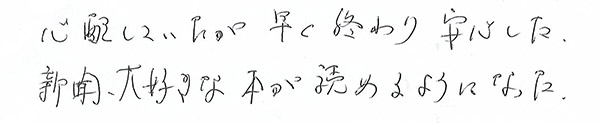 心配していたが早く終わり安心した.
新聞、大好きな本が読めるようになった.